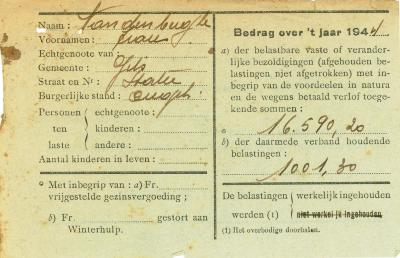 Naam : Vandenbughe
Voornamen :
Echtgenoote van :
Gemeente : Gits
Straat en Nr :
Burgerlijke stand :
Personen { echtgenoote :
ten { kinderen :
laste { andere :
Aantal kinderen in leven :
* Met inbegrip van : a) Fr.
vrijgestelde gezinsvergoeding ;
b) Fr. gestort aan
Winterhulp.
Bedrag over 't jaar 1944
a) de belastbare vaste of verander-
lijke bezoldigingen (afgehouden be-
lastingen niet afgetrokken) met in-
begrip van de voordeelen in natura
en de wegens betaald verlof toege-
kende sommen :
* 16.590,20
b) de daarmede verband houdende
belastingen :
1001,30
De belastingen { werkelijk ingehouden
werden (1) { niet werkelijk ingehouden
(1) Het overbodige doorhalen.